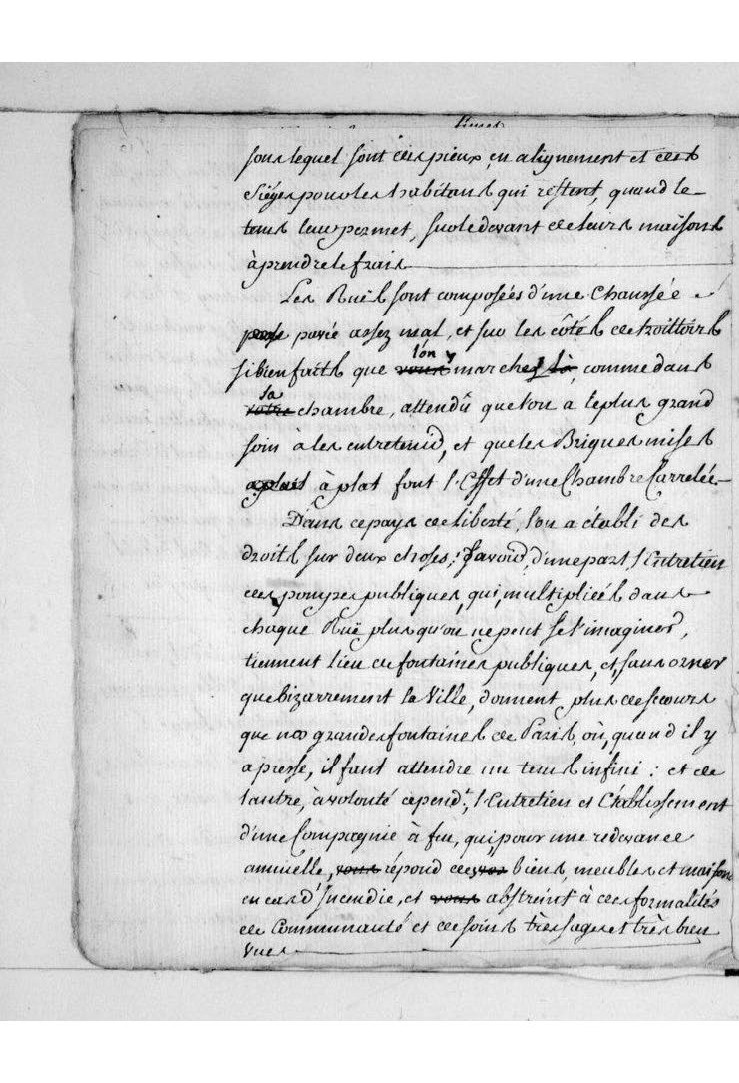 Rues
sous lequel sont des pieux, en alignement et des
siéges pour les habitans qui restent, quand le
tems leur permet, sur le devant de leurs maisons
à prendre le frais
Les Ruës sont composées d'une Chaussée
pavée assez mal, et sur les côtés de troittoirs
l'on y
si bien faits que vous marchez là, comme dans
sa
votre chambre, attendû que l'on a le plus grand
soin à les entretenir, et que les Briques mises
aplat à plat font l'Effet d'une Chambre Carrelée
Dans ce pays de liberté, l'on a établi des
droits sur deux choses; Savoir, d'une part, l'Entretien
des pompes publiques, qui, multipliées dans
chaque Ruë plus qu'on ne peut se l'imaginer,
tiennent lieu de fontaines publiques, et, sans orner
que bizarrement la Ville, donnent plus de secours
que nos grandes fontaines de Paris où, quand il y
a presse, il faut attendre un tems infini : et de
l'autre, à volonté cepend.t, l'Entretien et l'établissement
d'une Compagnie à feu, qui, pour une redevance
annuelle, vous répond des vos biens, meubles et maisons
en cas d'Incendie, et vous abstreint à des formalités
de Communauté et de soins très sages et très bien
vues